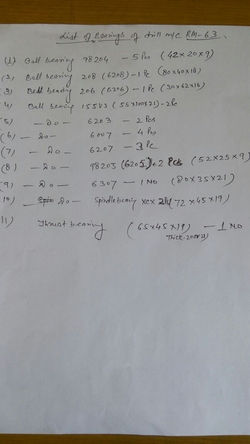 List of Bearings of drill m/c RM-63.
(1) Ball bearing 98204 - 5 Pcs (42x20x9)
(2) Ball bearing 208 (6208) - 1 Pc (80x40x18)
(3) Ball bearing 206 (6206) - 1 Pc (30x62x16)
4) Ball bearing
5) - Do - 6203 - 2 Pcs
(6) - Do - 6007 - 4 Pcs
(7) - Do - 6207 - 3 Pc
(8) - Do - 98205 (6205) 2 Pcs (52x25x9)
(9) - Do - 6307 - 1 No (80x35x21)
10) - Do - Spindle bearing (72x45x19)
11) Thrust bearing (65x45x19) - 1 No